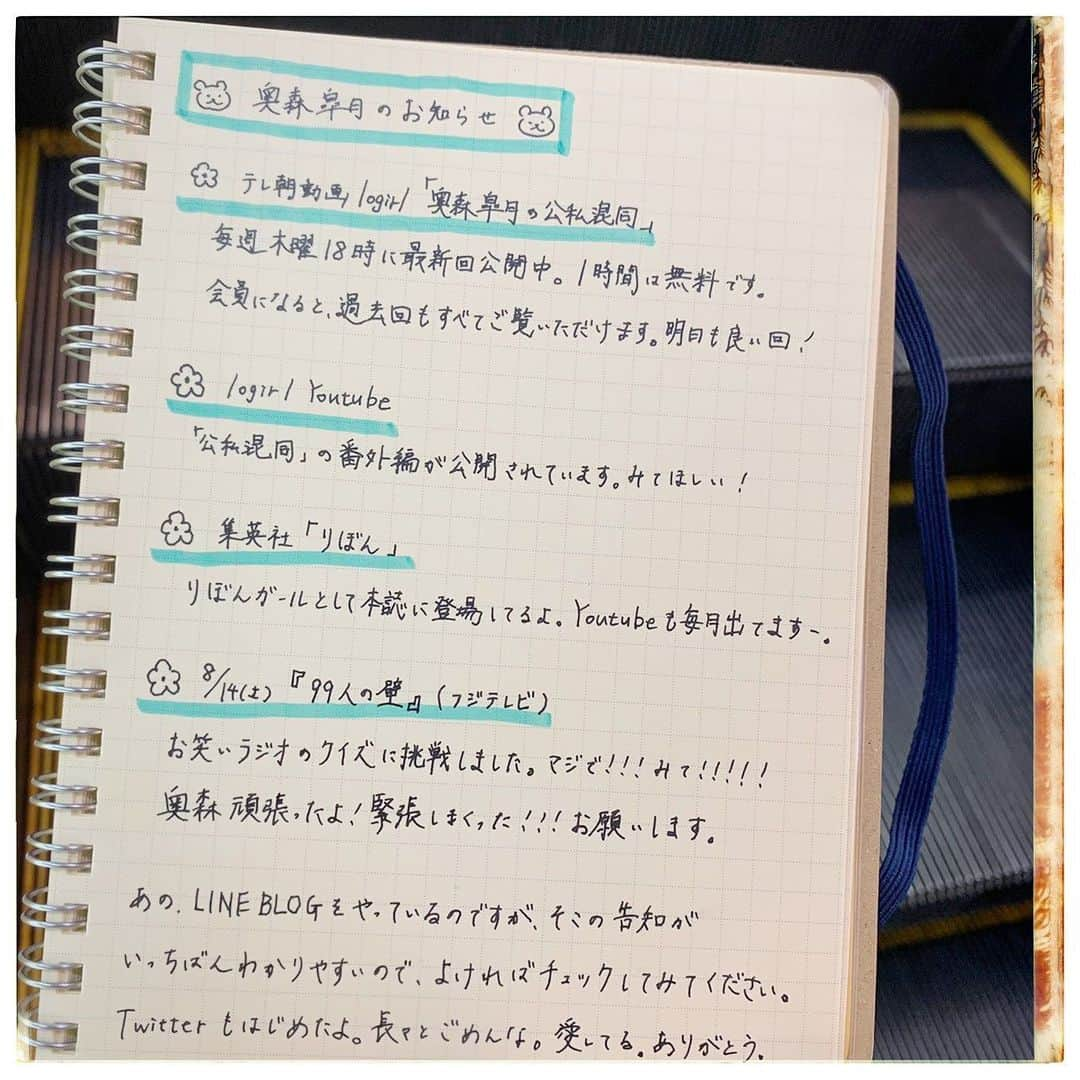 奥森皐月のお知らせ
テレ朝動画 logirl 「奥森皐月の公私混同」
毎週木曜18時に最新回公開中。1時間は無料です。
会員になると、過去回もすべてご覧いただけます。明日も良い回！
logirl Youtube
「公私混同」の番外編が公開されています。みてほしい！
集英社「りぼん」
りぼんガールとして本誌に登場してるよ。Youtubeも毎月出てますー。
8/14(土)『99人の壁』(フジテレビ)
お笑いラジオのクイズに挑戦しました。マジで!!!みて!!!!!
奥森頑張ったよ！緊張しまくった!!!お願いします。
あの、LINE BLOGをやっているのですが、そこの告知が
いっちばんわかりやすいので、よければチェックしてみてください。
Twitterもはじめたよ。長々とごめんな。愛してる。ありがとう。